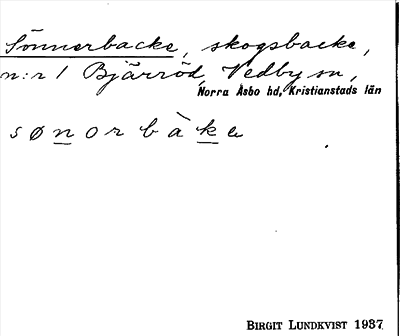 Sönnerbacke, skogsbacke,
n:r 1 Bjärröd, Vedby sn,
Norra Åsbo hd, Kristianstads län
sønorbàke
BIRGIT LUNDKVIST 1937